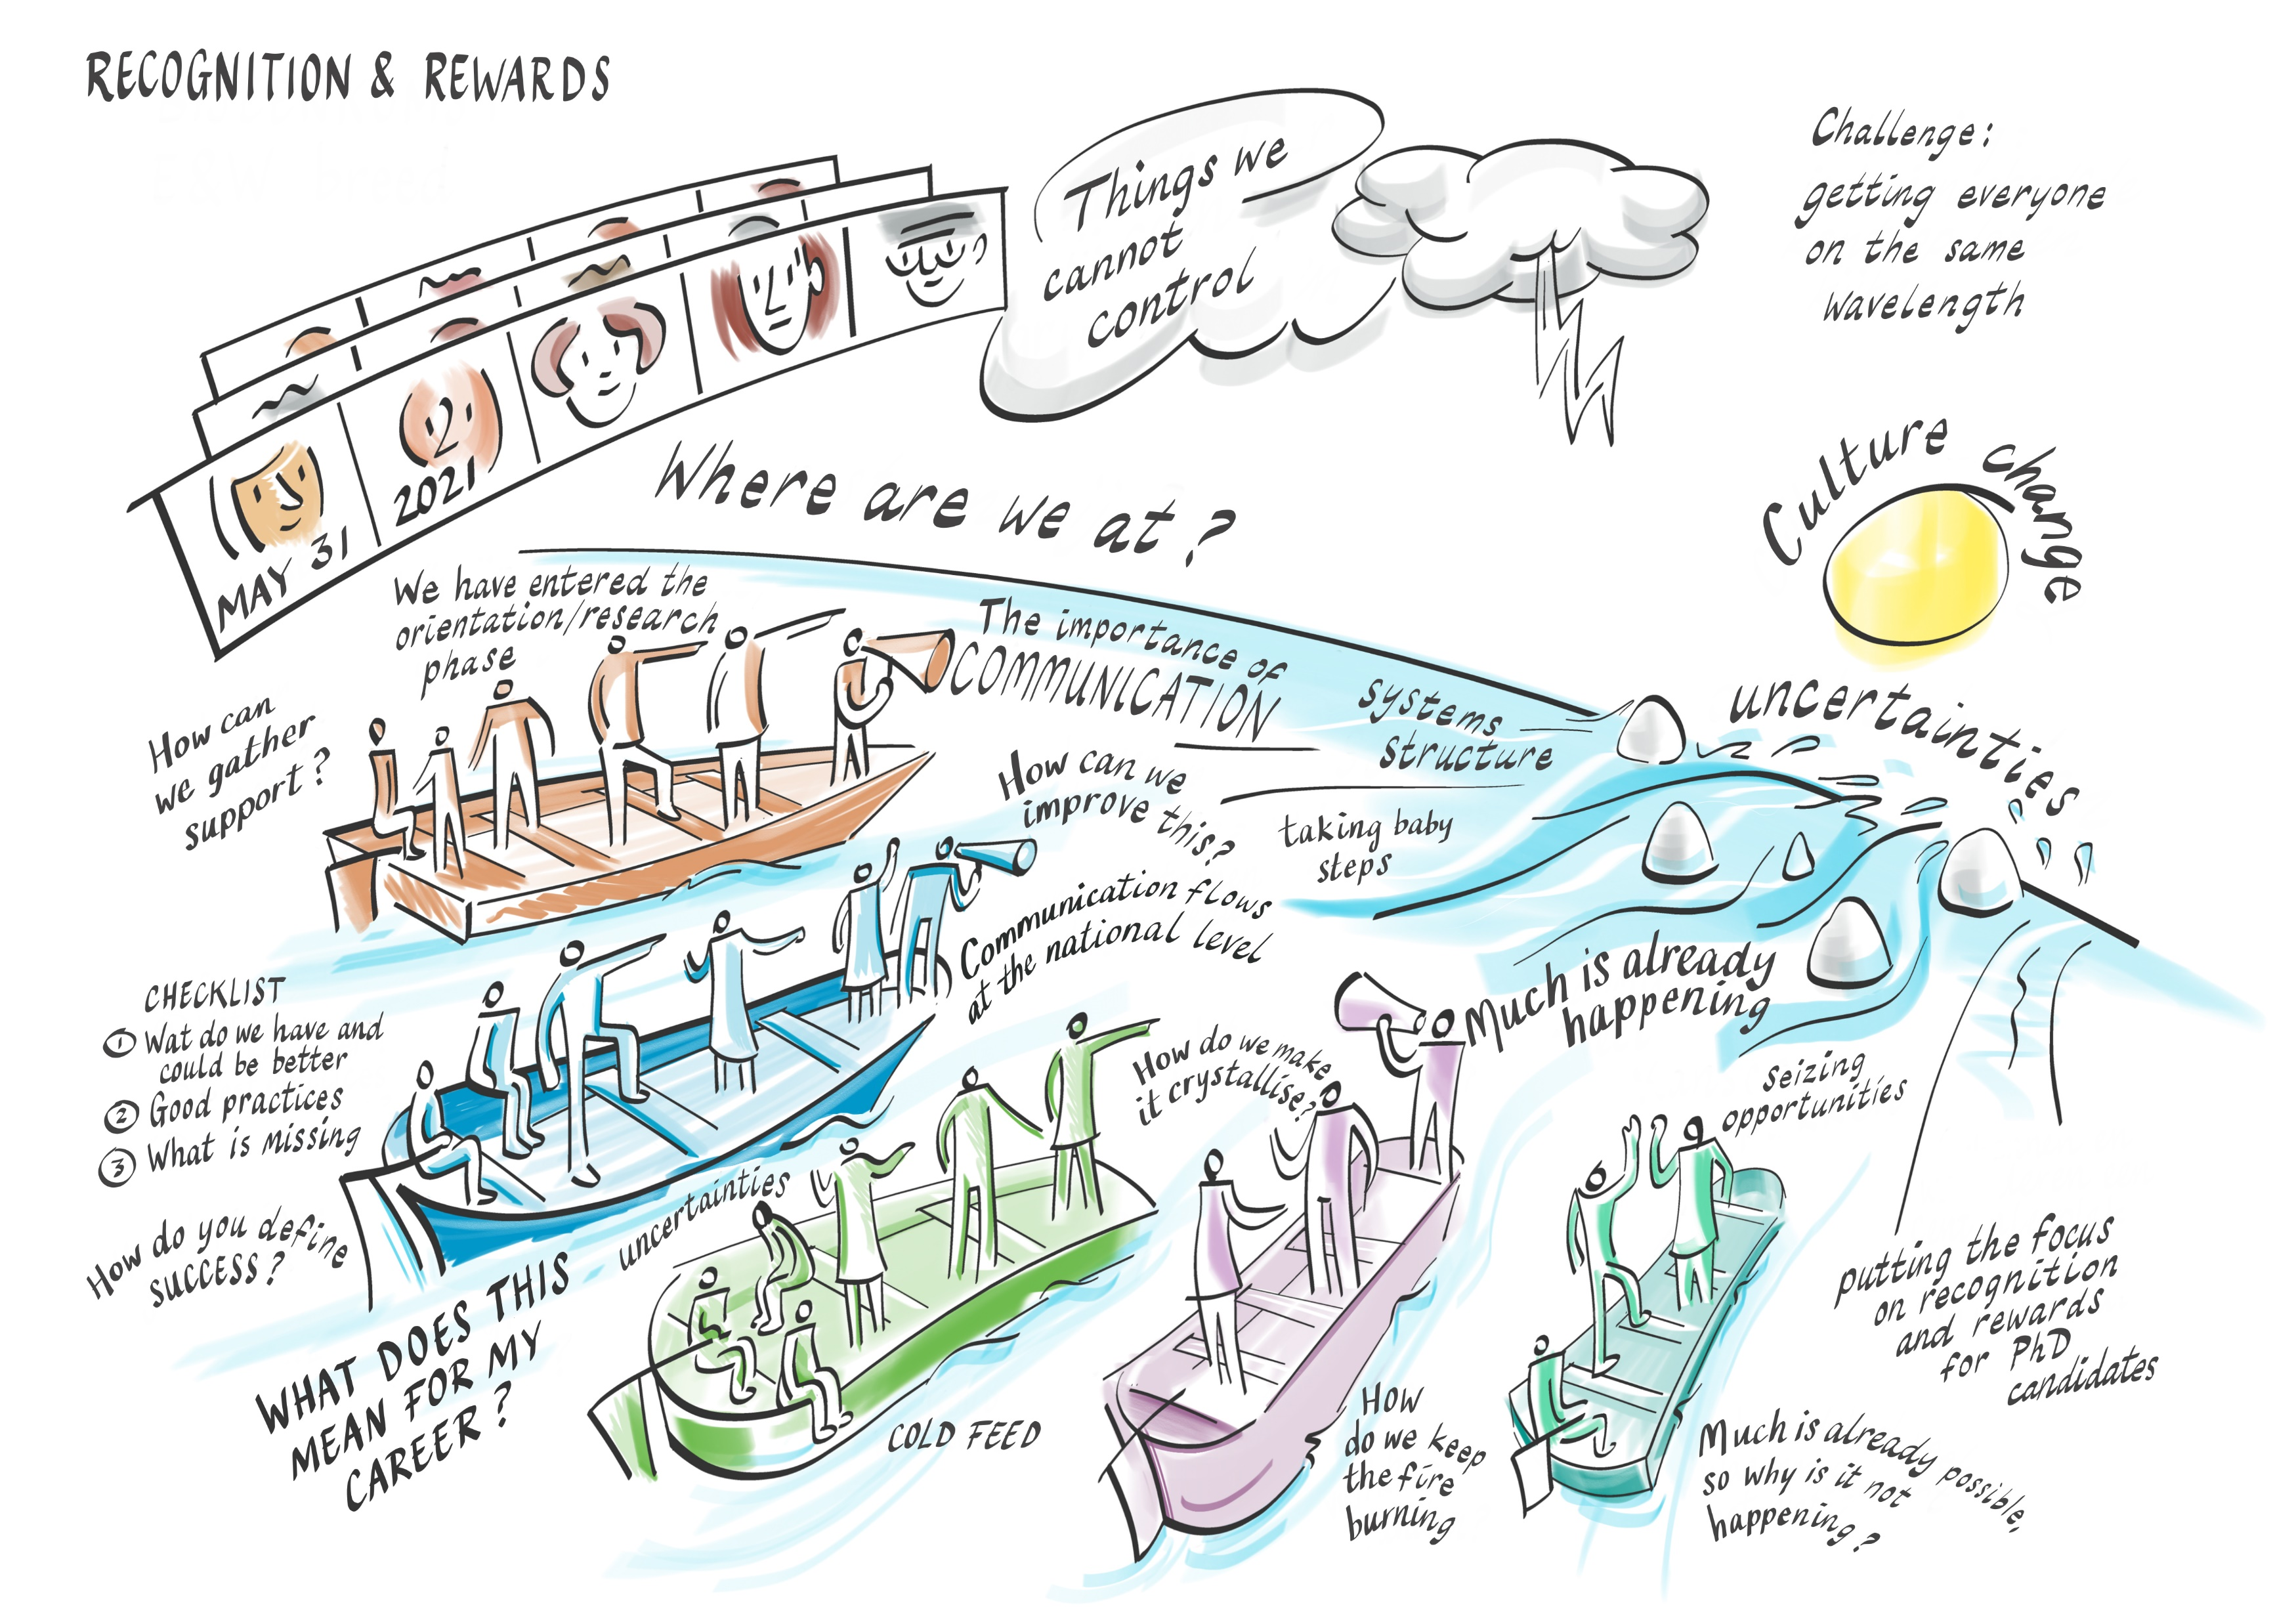 RECOGNITION & REWARDS
Things we
cannot
control
Challenge:
getting everyone
on the same
wavelength
MAY 31
2021
Where are we at?
Culture change
We have entered the
orientation/research
phase
The importance of
COMMUNICATION
systems
structure
uncertainties
How can
we gather
support?
How can we
improve this?
taking baby
steps
Communication flows
at the national level
Much is already
happening
CHECKLIST
1 Wat do we have and
could be better
2 Good practices
3 What is missing
How do we make
it crystallise?
seizing
opportunities
How do you define
success?
uncertainties
WHAT DOES THIS
MEAN FOR MY
CAREER?
COLD FEED
How
do we keep
the fire
burning
putting the focus
on recognition
and rewards
for PhD
candidates
Much is already possible,
so why is it not
happening?